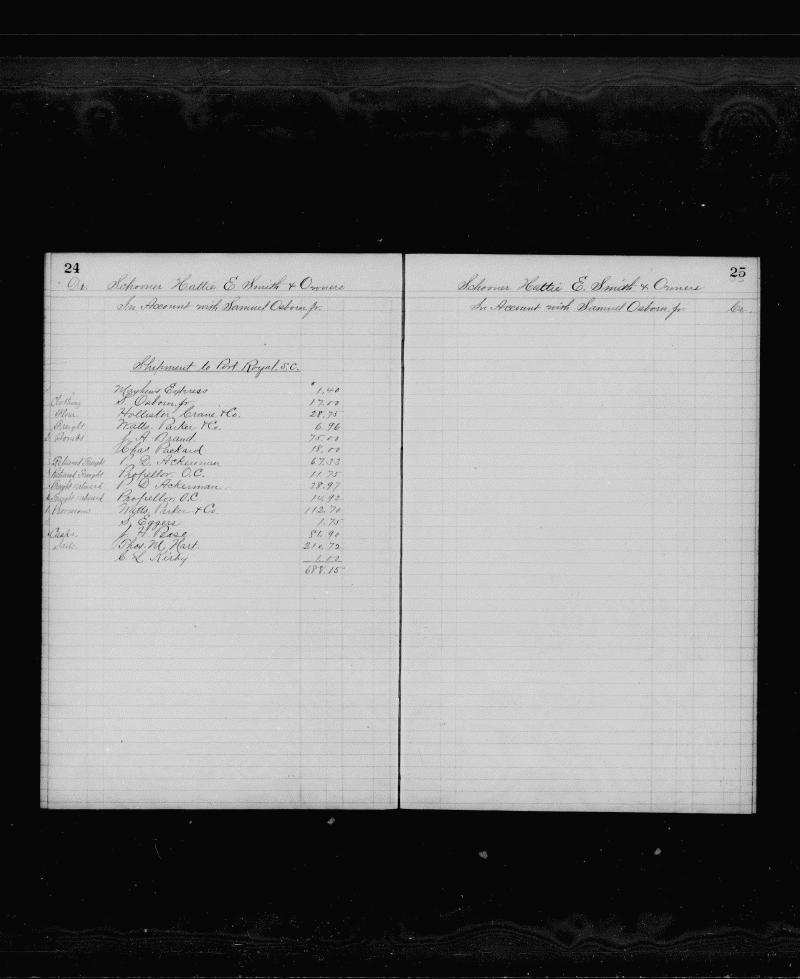 24
Dr. Schooner Hattie E. Smith & Owners
In Account with Samuel Osborn Jr.
Shipment to Port Royal. S.C.
Mayhew's Express $ 1.40
Clothing S. Osborn Jr 17.00
Flour Hollister, Crane & Co. 28.75
Freight Watts, Parker & Co. 6.96
J. A. Brand 75.00
Chas Packard 18.00
Returned Freight P. D. Ackerman 67.33
Returned Freight Propellor O.C. 11.75
Freight returned P. D Ackerman 38.97
Freight returned Propellor O.C 14.92
Provisions Watts, Parker & Co. 112.70
S. Eggers 1.75
Casks J. H. Pease 81.90
Thos. M. Hart. 210.72
C L Kirby 1.00
688.15
25
Schooner Hattie E. Smith & Owners
In Account with Samuel Osborn Jr Cr.